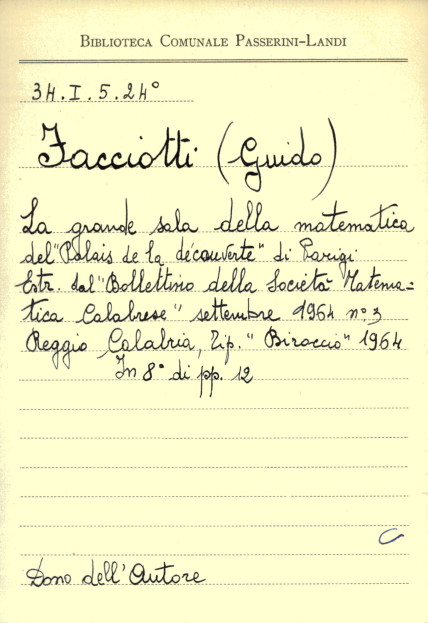 BIBLIOTECA COMUNALE PASSERINI-LANDI
34.I.5.24°
Facciotti (Guido)
La grande sala della matematica
del "Palais de la découverte" di Parigi
Estr. dal "Bollettino della Società Matema-
tica Calabrese" settembre 1964 n° 3
Reggio Calabria, Tip. "Biroccio" 1964
In 8° di pp. 12
Dono dell'Autore